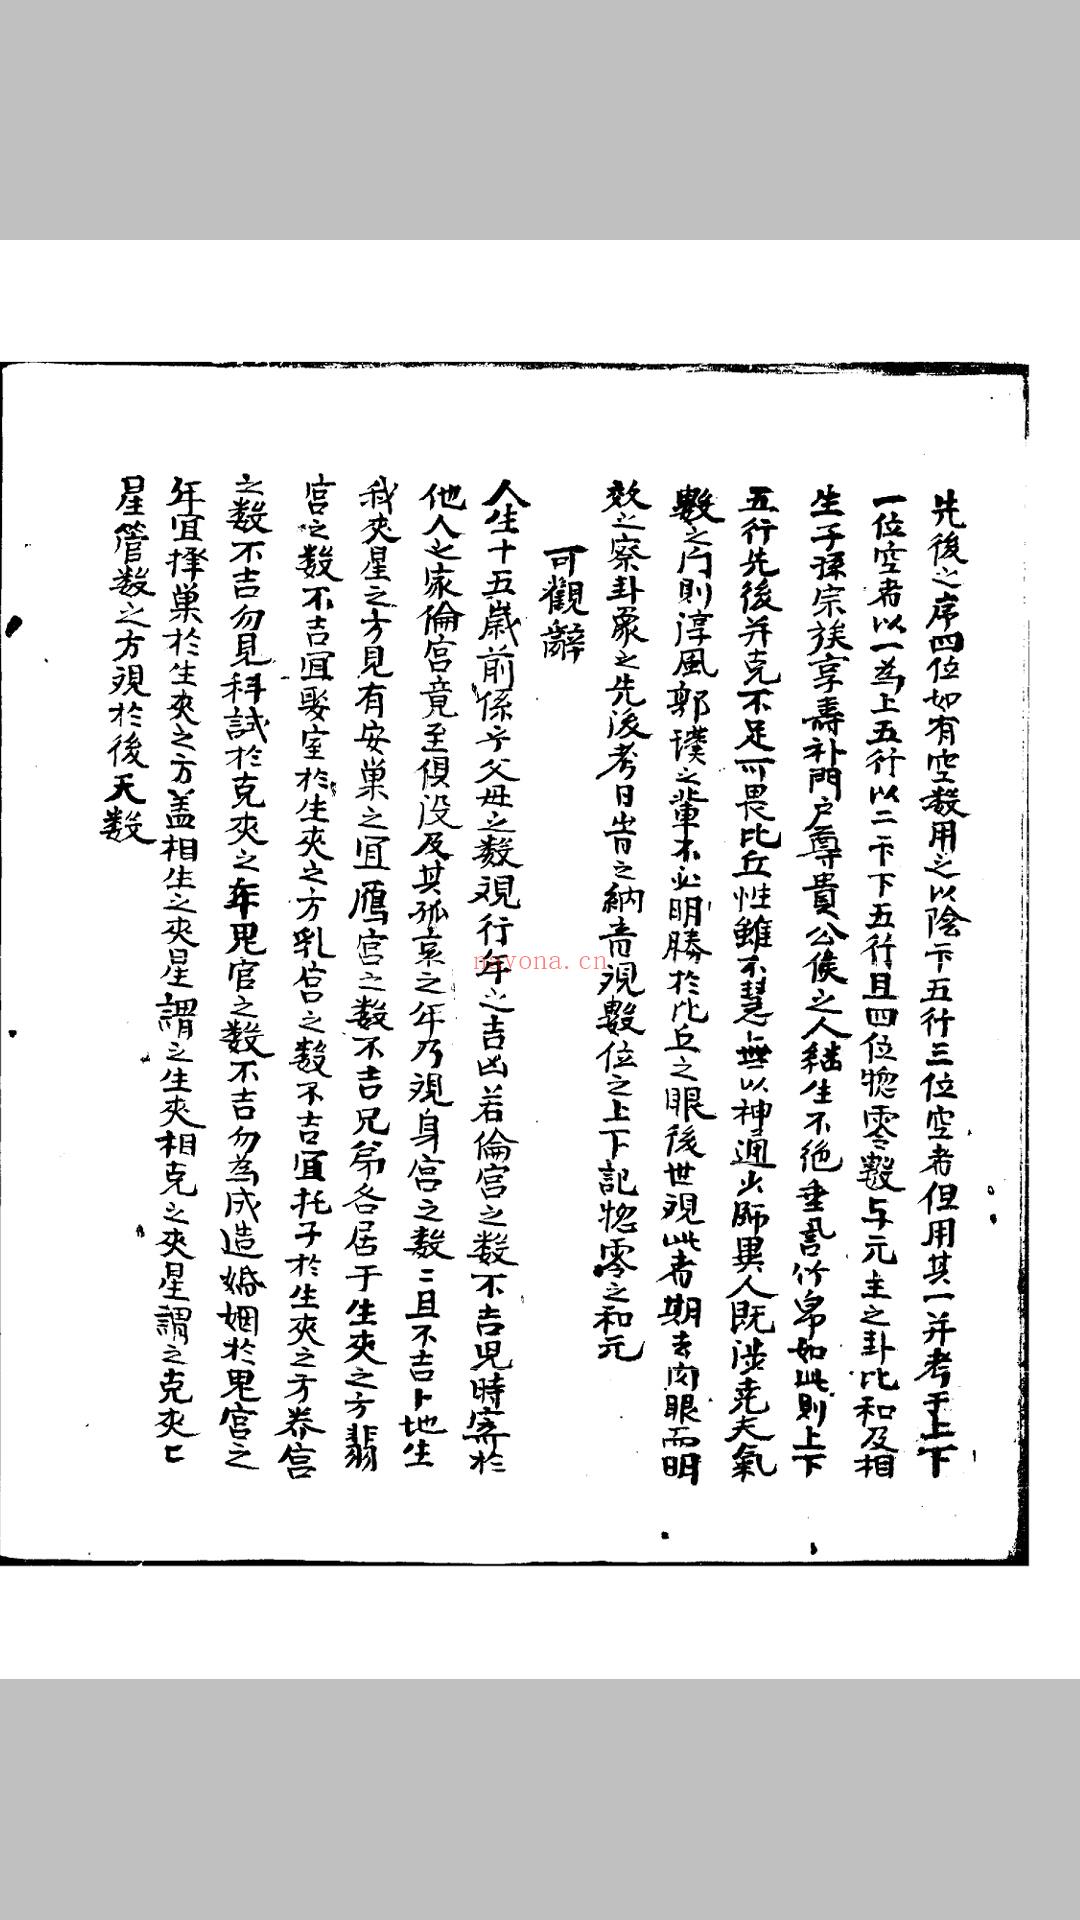 先後之序四位如有空數用之以陰下五行三位空者但用其一并考于上下
一位空者以一為上五行以二下下五行且四位惣零數与元主之卦比和及相
生子孫宗族享壽補門戶尊貴公侯之人継生不絶垂訁竹帛如此則上下
五行先後并克不足可畏比丘性雖不慧上無以神通火師異人既涉堯夫氣
數之門則淳風郭璞之輩不必明勝於比丘之眼後世覌此者期去肉眼而明
效之察卦象之先後考日旹之納音覌數位之上下記惣零之和元
可觀辭
人生十五歲前係乎父母之数覌行年之吉凶若倫宮之数不吉児時寄於
他人之家倫宮竟至傾没及其孤哀之年乃覌身宮之数二且不吉卜地生
我夾星之方見有安巢之宜鴈宮之数不吉兄弟各居于生夾之方翡
宮之数不吉宜娶室於生夾之方乳宮之数不吉宜托子於生夾之方券宮
之数不吉勿見科試於克夾之年鬼官之数不吉勿為成造婚姻於鬼宮之
年宜擇巢於生夾之方盖相生之夾星謂之生夾相克之夾星謂之克夾匕
星管数之方視於後天数
nayona.cn